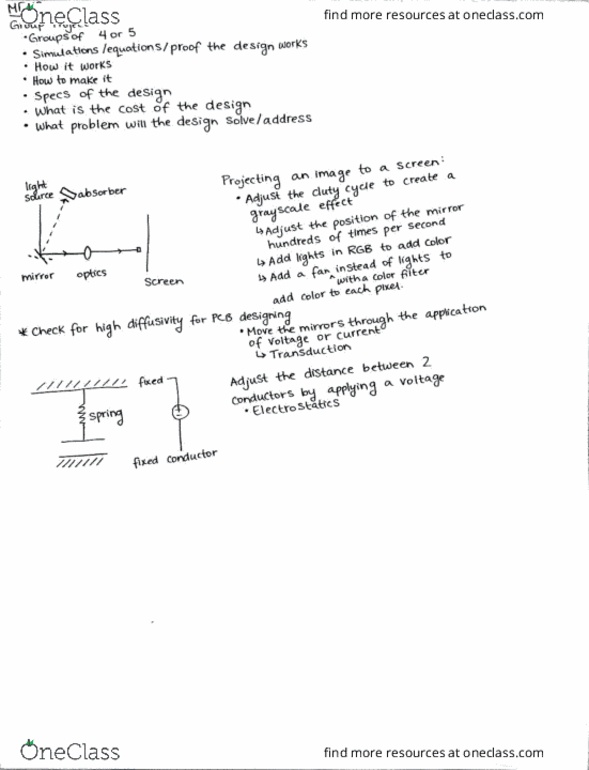 OneClass
find more resources at oneclass.com
Group Project
• Groups of 4 or 5
• Simulations/equations/proof the design works
• How it works
• How to make it
• Specs of the design
• What is the cost of the design
• What problem will the design solve/address
light
source
absorber
mirror
optics
Screen
Projecting an image to a screen:
• Adjust the duty cycle to create a
grayscale effect
↳ Adjust the position of the mirror
hundreds of times per second
↳ Add lights in RGB to add color
↳ Add a fan instead of lights to
^ with a color filter
add color to each pixel.
* Check for high diffusivity for PCB designing
• Move the mirrors through the application
of voltage or current
↳ Transduction
fixed
spring
fixed conductor
Adjust the distance between 2
conductors by applying a voltage
• Electrostatics
OneClass
find more resources at oneclass.com